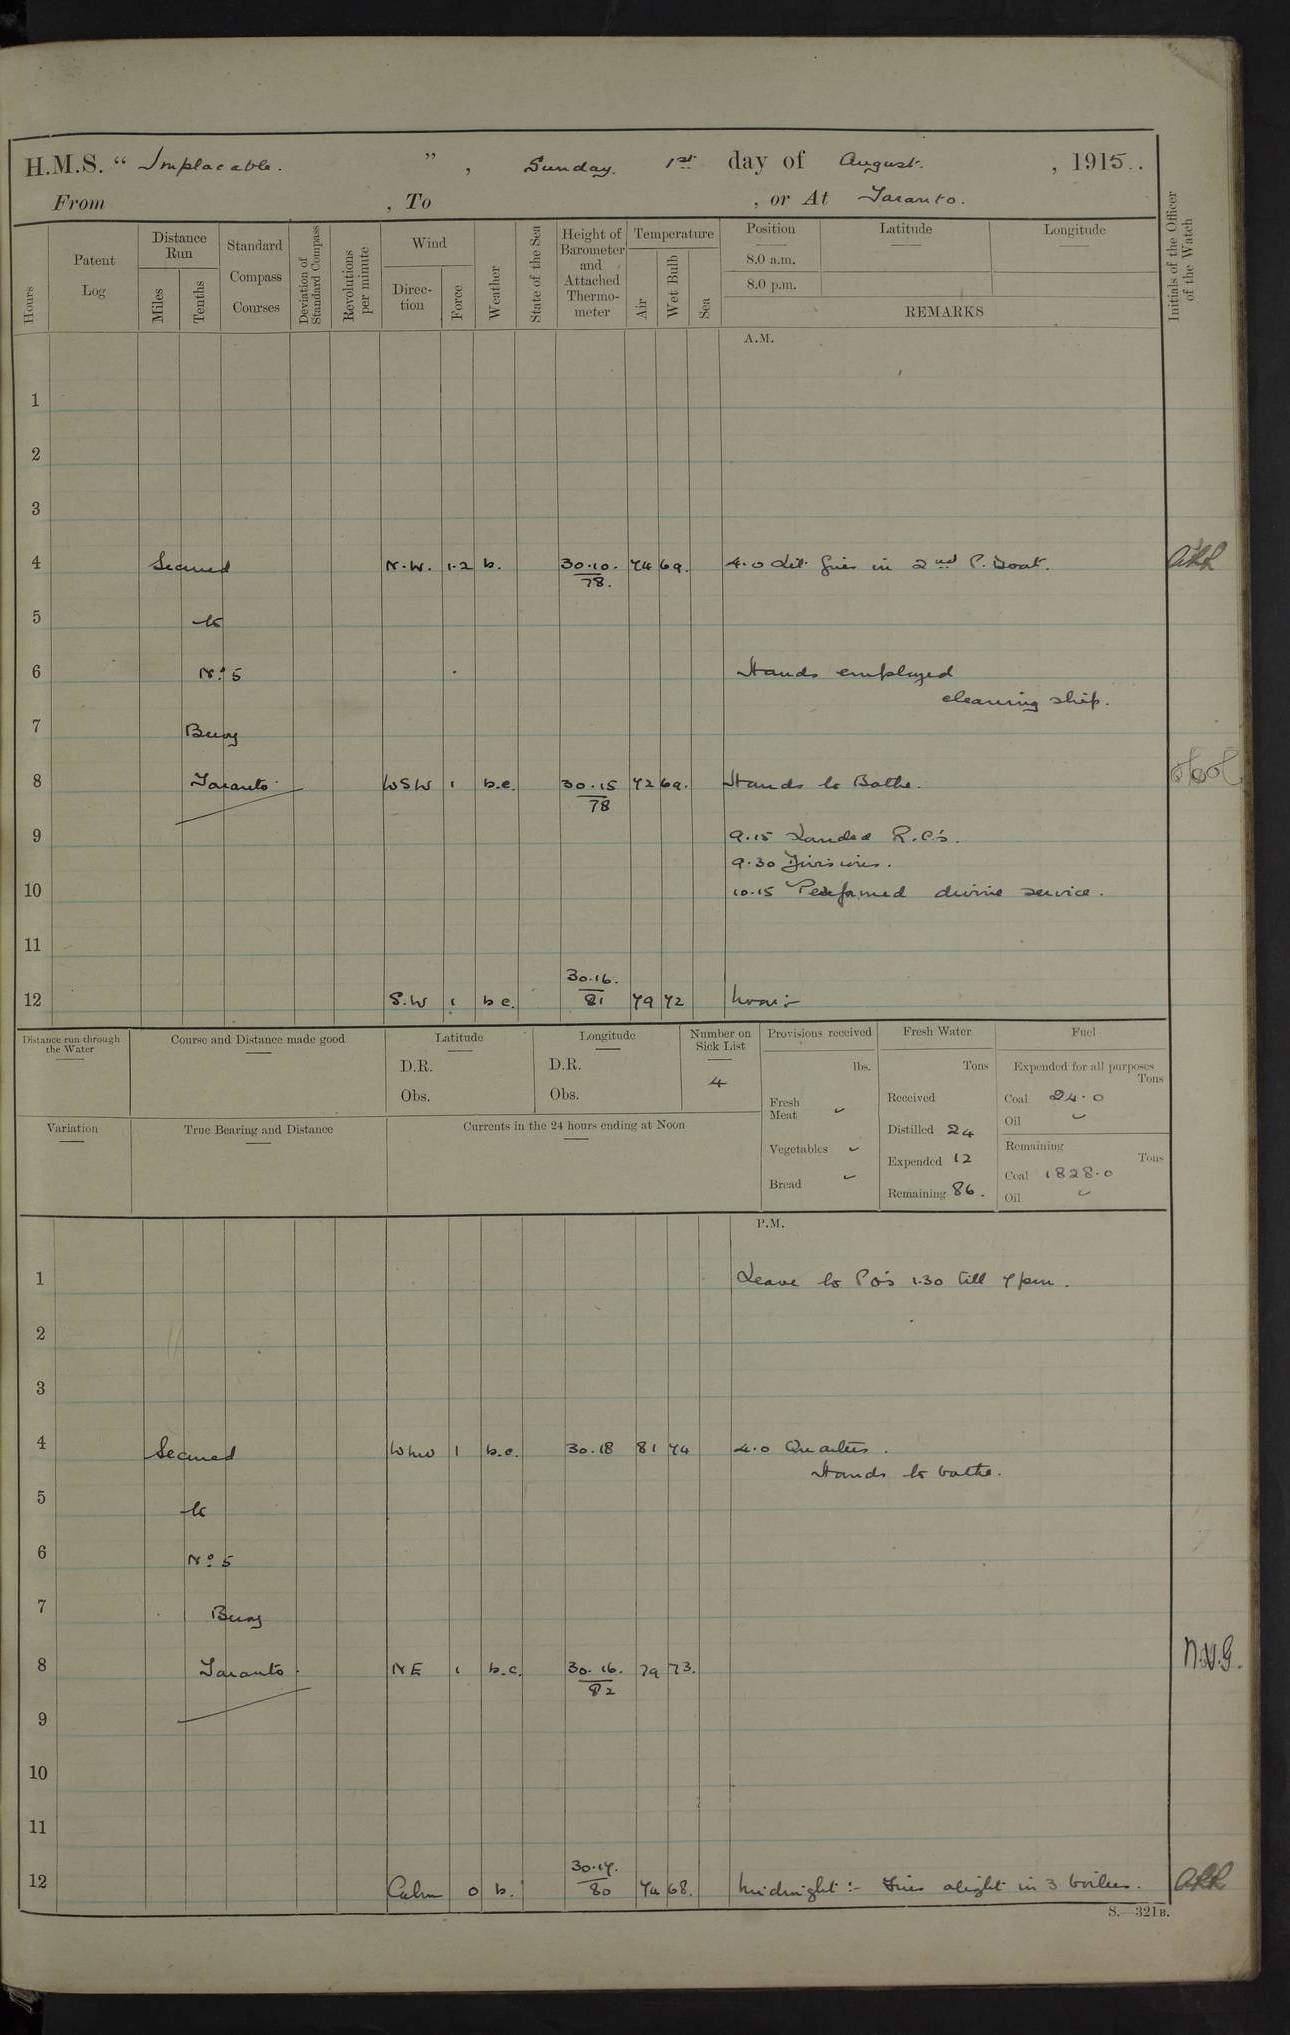 H.M.S. “ Implacable. ”, Sunday. 1st day of August. , 1915..
From , To , or At Taranto.
Hours
Patent Log
Distance Run
Miles
Tenths
Standard Compass Courses
Deviation of Standard Compass
Revolutions per minute
Wind
Direction
Force
Weather
State of the Sea
Height of Barometer and Attached Thermometer
Temperature
Air
Wet Bulb
Sea
Position
8.0 a.m.
8.0 p.m.
Latitude
Longitude
REMARKS
Initials of the Officer of the Watch
A.M.
1
2
3
4 Secured N.W. 1.2 b. 30.10. 74 69. 4.0 Lit fires in 2nd P. Boat.
78.
5 to
6 No. 5 Hands employed
cleaning ship.
7 Buoy
8 Taranto WSW 1 b.c. 30.15 72 69. Hands to Bathe.
78
9 9.15 Landed R.C's.
9.30 Divisions.
10 10.15 Performed divine service.
11
30.16.
12 S.W 1 b c. 81 79 72 Noon:-
Distance run through the Water
Course and Distance made good
Latitude
D.R.
Obs.
Longitude
D.R.
Obs.
Number on Sick List
4
Provisions received
lbs.
Fresh Meat
Vegetables
Bread
Fresh Water
Tons
Received
Distilled 24
Expended 12
Remaining 86.
Fuel
Expended for all purposes
Tons
Coal 24.0
Oil
Remaining
Tons
Coal 1828.0
Oil
Variation
True Bearing and Distance
Currents in the 24 hours ending at Noon
P.M.
1 Leave to Po's 1.30 till 7pm.
2
3
4 Secured WNW 1 b.c. 30.18 81 74 4.0 Quarters.
Hands to bathe.
5 to
6 No. 5
7 Buoy
8 Taranto. NE 1 b.c. 30.16. 79 73. N.V.G.
82
9
10
11
30.17.
12 Calm 0 b. 80 74 68. Midnight:- Fires alight in 3 boilers.
S.—321B.